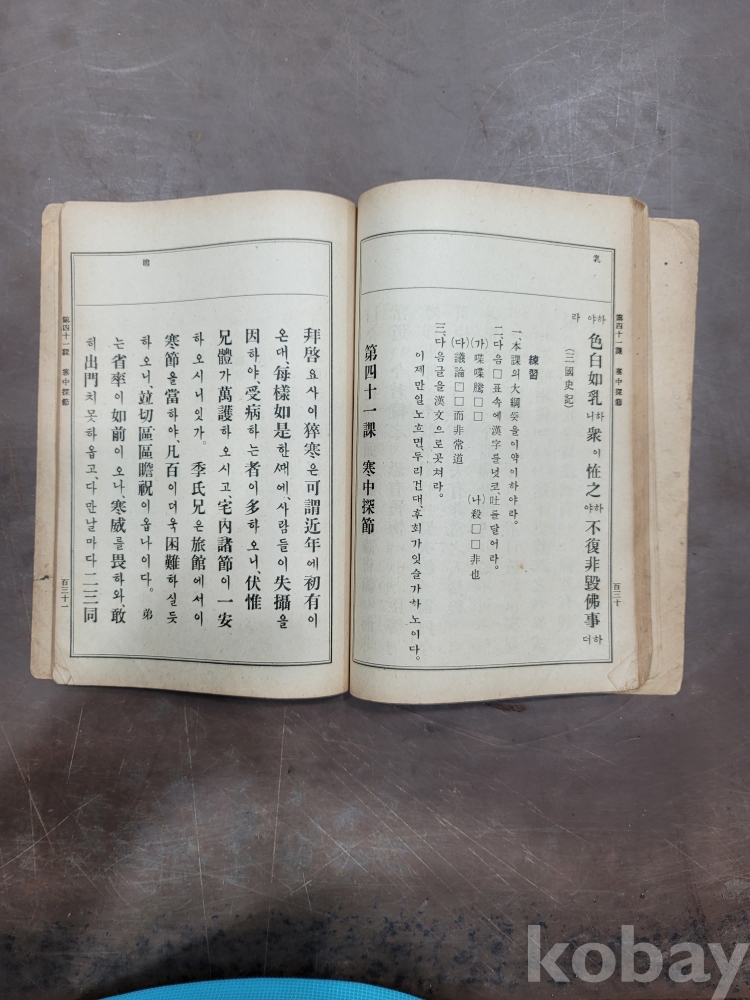 乳
第四十一課 寒中探節
百三十
하야라 色白如乳하니 衆이 恠之하야 不復非毀佛事하더
(三國史記)
練習
一、本課의大綱뜻을이약이하야라。
二、다음□표속에漢字를넛코吐를달어라。
(가)喋喋騰□□ (나)殺□□非也
(다)議論□□而非常道
三、다음글을漢文으로곳쳐라。
이제만일노흐면、두리건대、후회가잇슬가하노이다。
第四十一課 寒中探節
拜啓 요사이猝寒은可謂近年에初有이
온대、每樣如是한때에、사람들이失攝을
因하야、受病하는者이多하오니、伏惟
兄體가萬護하오시고、宅內諸節이一安
하오시니잇가。 季氏兄은旅館에서이
寒節을當하야、凡百이더욱困難하실듯
하오니、竝切區區瞻祝이옵나이다。 弟
는省率이如前이오나、寒威를畏하와、敢
히出門치못하옵고、다만날마다二三同
瞻
第四十一課 寒中探節
百三十一
kobay